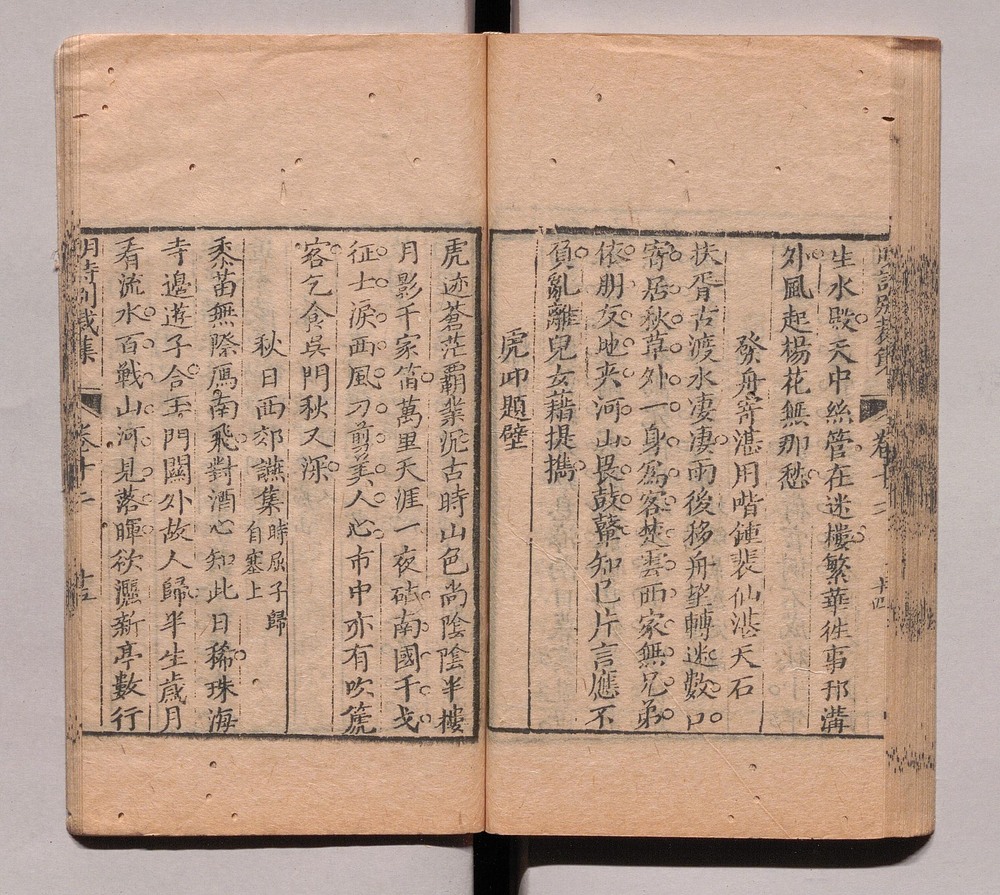 生水殿天中絲管在迷樓繁華徃事邗溝
外風起楊花無那愁
發舟寄湛用喈鍾裴仙湛天石
扶胥古渡水凄凄雨後移舟望轉迷數口
寄居秋草外一身爲客楚雲西家無兄弟
依朋友地夾河山畏鼓鼙知已片言應不
負亂離兒女藉提攜
虎邱題壁
虎迹蒼茫霸業沉古時山色尚陰陰半樓
月影千家笛萬里天涯一夜砧南國干戈
征士淚西風刀剪美人心市中亦有吹篪
客乞食吳門秋又深
秋日西郊讌集時屈子歸自塞上
黍苗無際鴈南飛對酒心知此日稀珠海
寺邊遊子合玉門關外故人歸半生歲月
看流水百戰山河見落暉欲灑新亭數行
明詩別裁集 卷十二 廿五